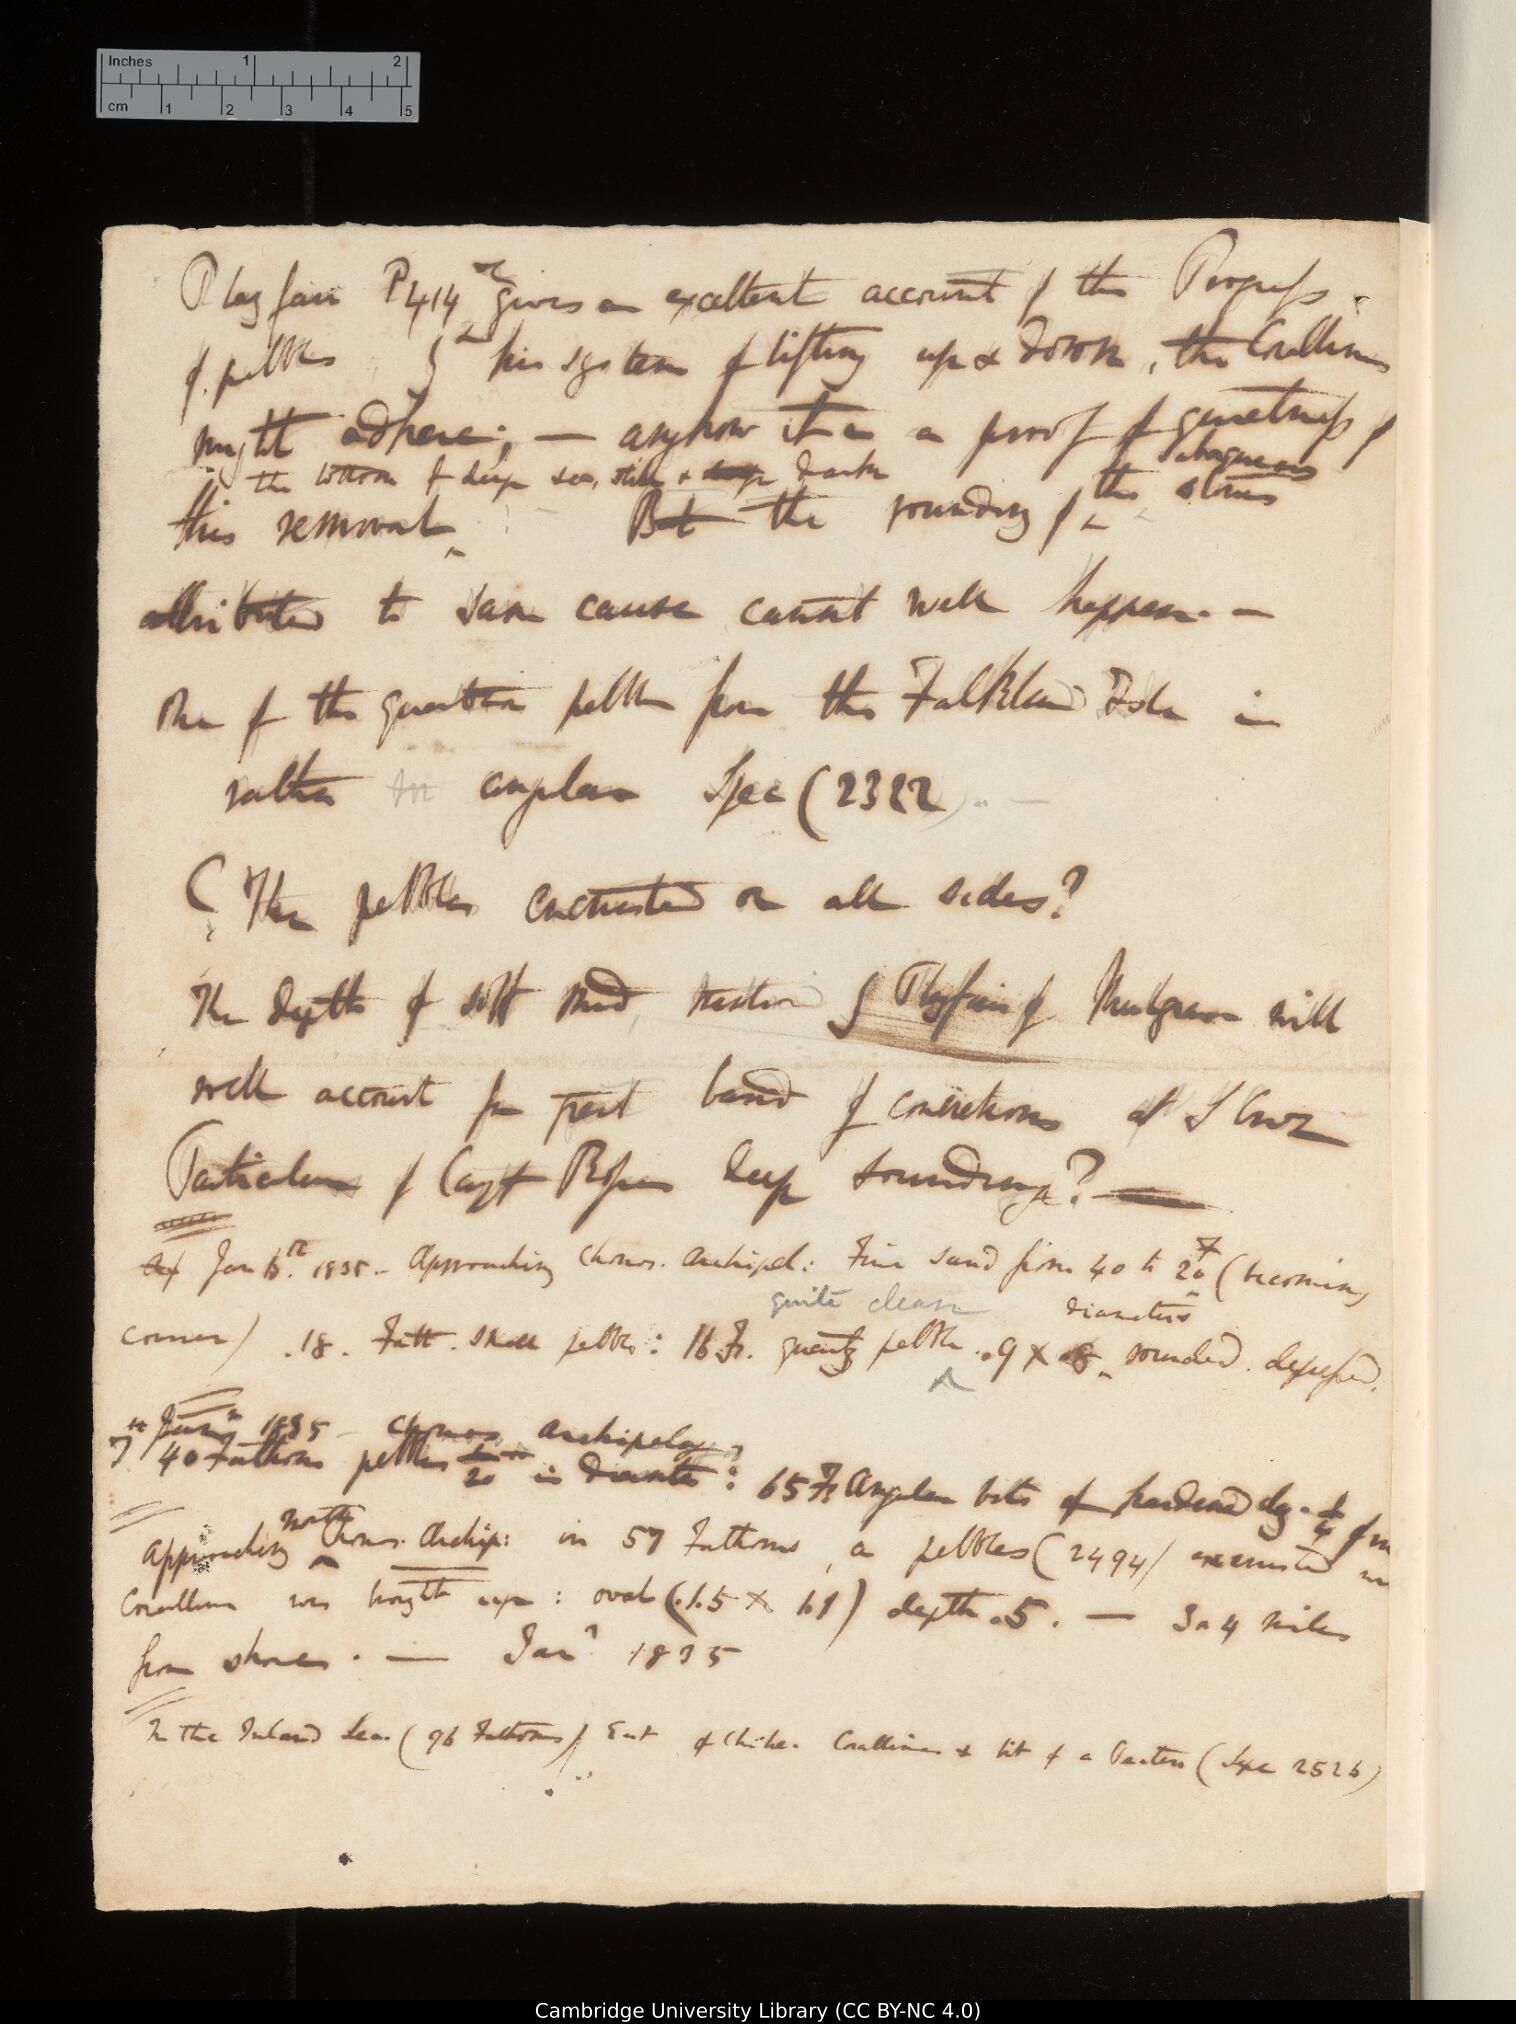 Inches 1 2
cm 1 2 3 4 5
Playfair P 414 gives an excellent account of the Progress
of pebbles his system of lifting up & down, the Corallines
might adhere; — anyhow it is a proof of gentleness of
the bottom of deep sea, still & dark
this removal But the rounding of the stones
attributed to same cause cannot well happen. —
One of the quartz pebbles from the Falkland Isds is
rather angular Spec (2322)
(The pebbles encrusted on all sides?
The depth of soft mud, Playfair of Mulgrave will
well account for great band of concretions at S Cruz
Particulars of Capt Rosses deep soundings? —
Jan 6th. 1835 — Approaching Chonos. Archipel: Fine sand from 40 to 20 F (becoming
quite clean diameters
coarser) .18. Fath. small pebbles: 16 Fs. quartz pebble .9 X .8 rounded. depressed.
7th Jany 1835 — Chonos Archipelag
40 Fathoms pebbles 1/20th in diameter: 65 Fs Angular bits of hardened clay. 1/4 of
north
Approaching Chonos. Archip: in 57 Fathoms, a pebbles (2494) encrusted
Coralline was brought up: oval (1.5 X 1.1) depth .5. — 3 or 4 miles
from shores. — Jan 1835
In the Inland Sea. (96 Fathoms) East of Chiloe. Corallines & bit of a Pecten (Spec 2526)
Cambridge University Library (CC BY-NC 4.0)